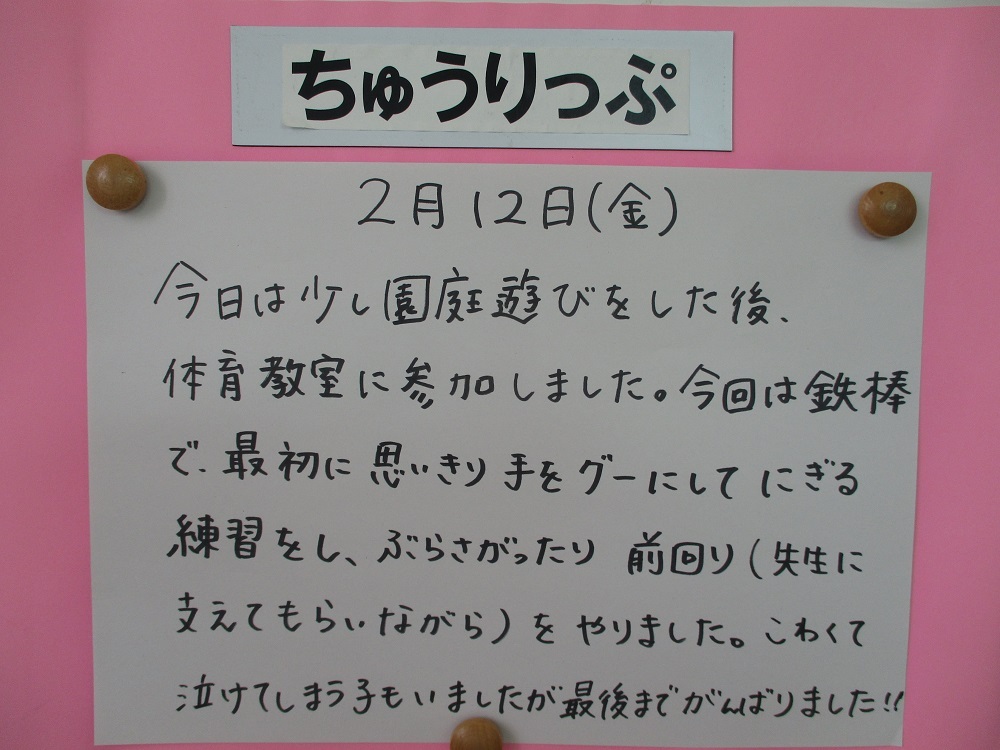 ちゅうりっぷ
2月12日(金)
今日は少し園庭遊びをした後、
体育教室に参加しました。今回は鉄棒
で、最初に思いきり手をグーにしてにぎる
練習をし、ぶらさがったり前回り(先生に
支えてもらいながら)をやりました。こわくて
泣けてしまう子もいましたが最後までがんばりました!!